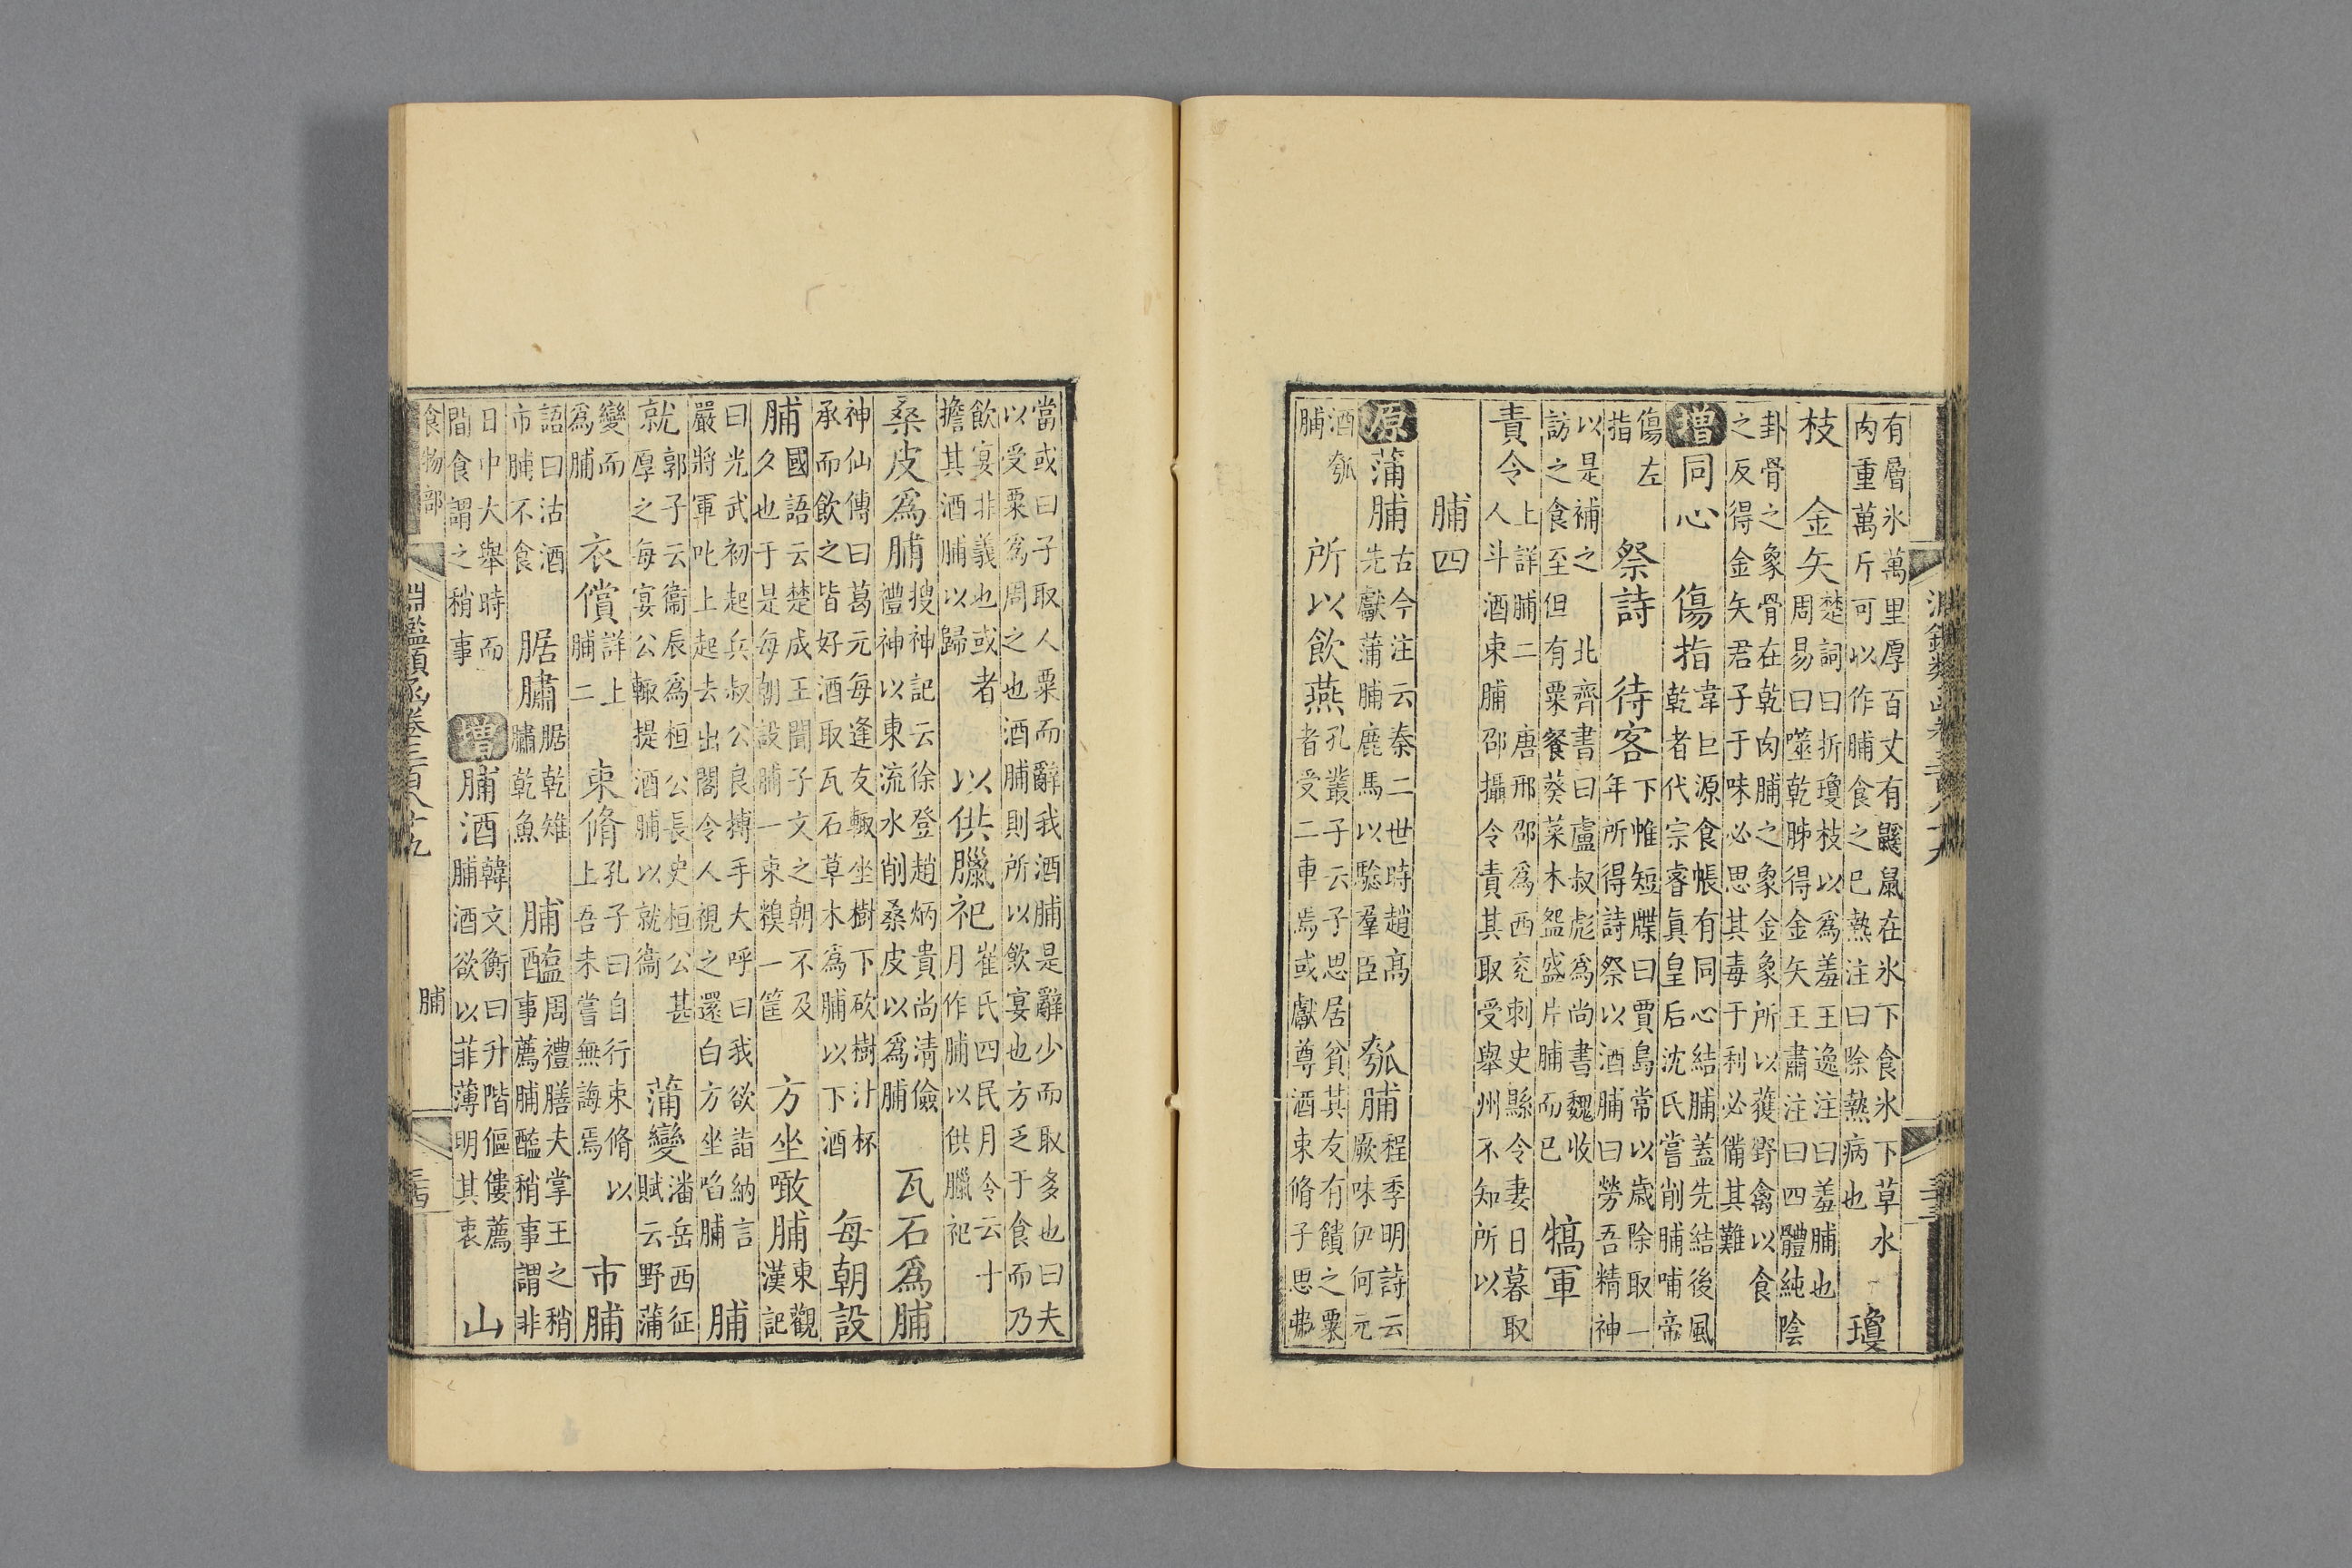 有層冰萬里厚百丈有鼷鼠在冰下食冰下草木
肉重萬斤可以作脯食之已熱注曰除熱病也
瓊
枝
金矢
楚詞曰折瓊枝以為羞王逸注曰羞脯也
周易曰噬乾胏得金矢王肅注曰四體純陰
卦骨之象骨在乾肉脯之象金象所以獲野禽以食
之反得金矢君子于味必思其毒于利必備其難
增同心
傷指
韋巨源食帳有同心結脯蓋先結後風
乾者代宗睿真皇后沈氏嘗削脯哺帝
傷左
指
祭詩
待客
下帷短牒曰賈島常以歲除取一
年所得詩祭以酒脯曰勞吾精神
以是補之
北齊書曰盧叔彪為尚書魏收
訪之食至但有粟飧葵菜木盌盛片脯而已
犒軍
責令
上詳脯二
唐邢邵為西兗刺史縣令妻日暮取
人斗酒束脯邵攝令責其取受舉州不知所以
脯四
原蒲脯
古今注云秦二世時趙高
先獻蒲脯鹿馬以驗羣臣
瓠脯
程季明詩云
厥味伊何元
酒瓠
脯
所以飲燕
孔叢子云子思居貧其友有饋之粟
者受二車焉或獻尊酒束脩子思弗
當或曰子取人粟而辭我酒脯是辭少而取多也曰夫
以受粟為周之也酒脯則所以飲宴也方乏于食而乃
飲宴非義也或者
擔其酒脯以歸
以供臘祀
崔氏四民月令云十
月作脯以供臘祀
桑皮為脯
搜神記云徐登趙炳貴尚清儉
禮神以東流水削桑皮以為脯
瓦石為脯
神仙傳曰葛元每逢友輙坐樹下砍樹汁杯
承而飲之皆好酒取瓦石草木為脯以下酒
每朝設
脯
國語云楚成王聞子文之朝不及
久也于是每朝設脯一束糗一筐
方坐噉脯
東觀
漢記
曰光武初起兵叔公良搏手大呼曰我欲詣納言
嚴將軍叱上起去出閣令人視之還白方坐啗脯
脯
就
郭子云衞辰為桓公長史桓公甚
厚之每宴公輙提酒脯以就衞
蒲變
潘岳西征
賦云野蒲
變而
為脯
衣償
詳上
脯二
束脩
孔子曰自行束脩以
上吾未嘗無誨焉
市脯
語曰沽酒
市脯不食
腒鱐
腒乾雉
鱐乾魚
脯醢
周禮膳夫掌王之稍
事薦脯醢稍事謂非
日中大舉時而
間食謂之稍事
增脯酒
韓文衡曰升階傴僂薦
脯酒欲以菲薄明其衷
山
食物部
淵鑑類函卷三百八十九
脯